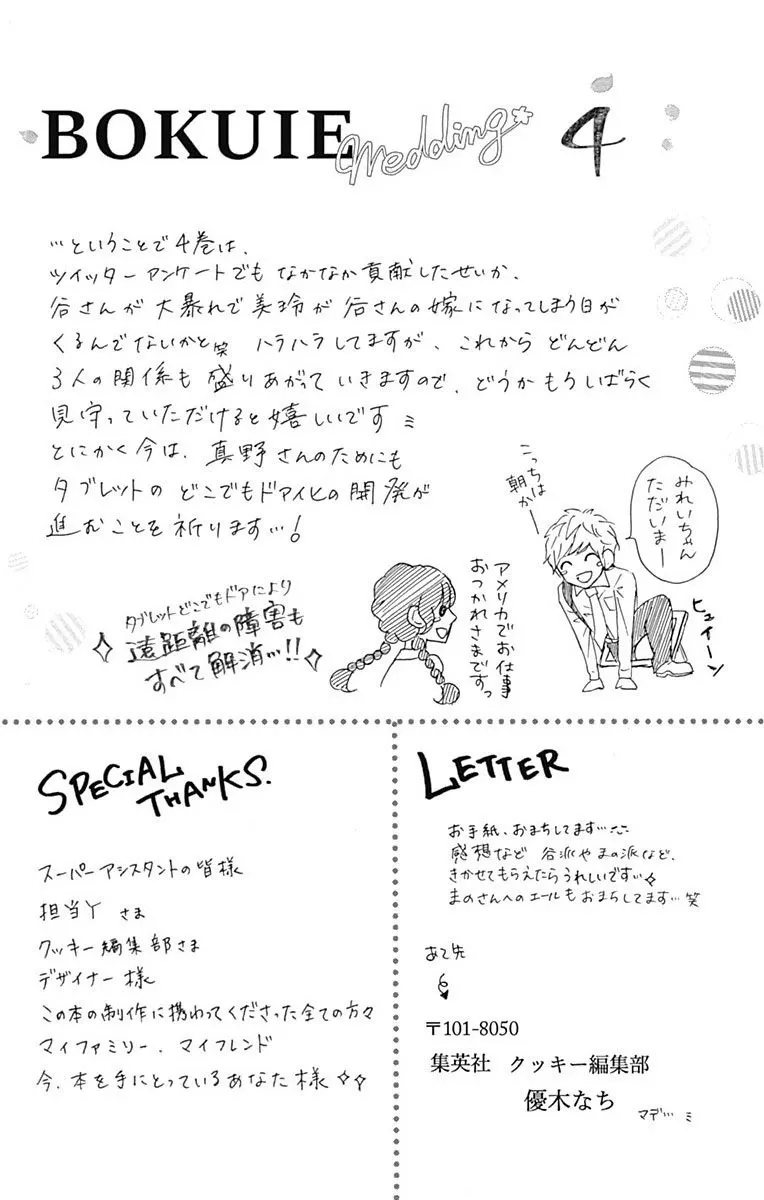 BOKUIE Wedding 4
…ということで4巻は、
ツイッターアンケートでもなかなか貢献したせいか、
谷さんが大暴れで美玲が谷さんの嫁になってしまう日が
くるんでないかと笑 ハラハラしてますが、これからどんどん
3人の関係も盛りあがっていきますので、どうかもうしばらく
見守っていただけると嬉しいです
とにかく今は、真野さんのためにも
タブレットのどこでもドア化の開発が
進むことを祈ります…!
みれいちゃん
ただいまー
こっちは
朝かー
ヒュイーン
アメリカでお仕事
おつかれさまですっ
タブレットどこでもドアにより
遠距離の障害も
すべて解消…!!
SPECIAL
THANKS.
スーパーアシスタントの皆様
担当Yさま
クッキー編集部さま
デザイナー様
この本の制作に携わってくださった全ての方々
マイファミリー、マイフレンド
今、本を手にとっているあなた様
LETTER
お手紙、おまちしてます…
感想など 谷派やまの派など、
きかせてもらえたらうれしいです…
まのさんへのエールもおまちしてます…笑
あて先
〒101-8050
集英社 クッキー編集部
優木なち
マデ…